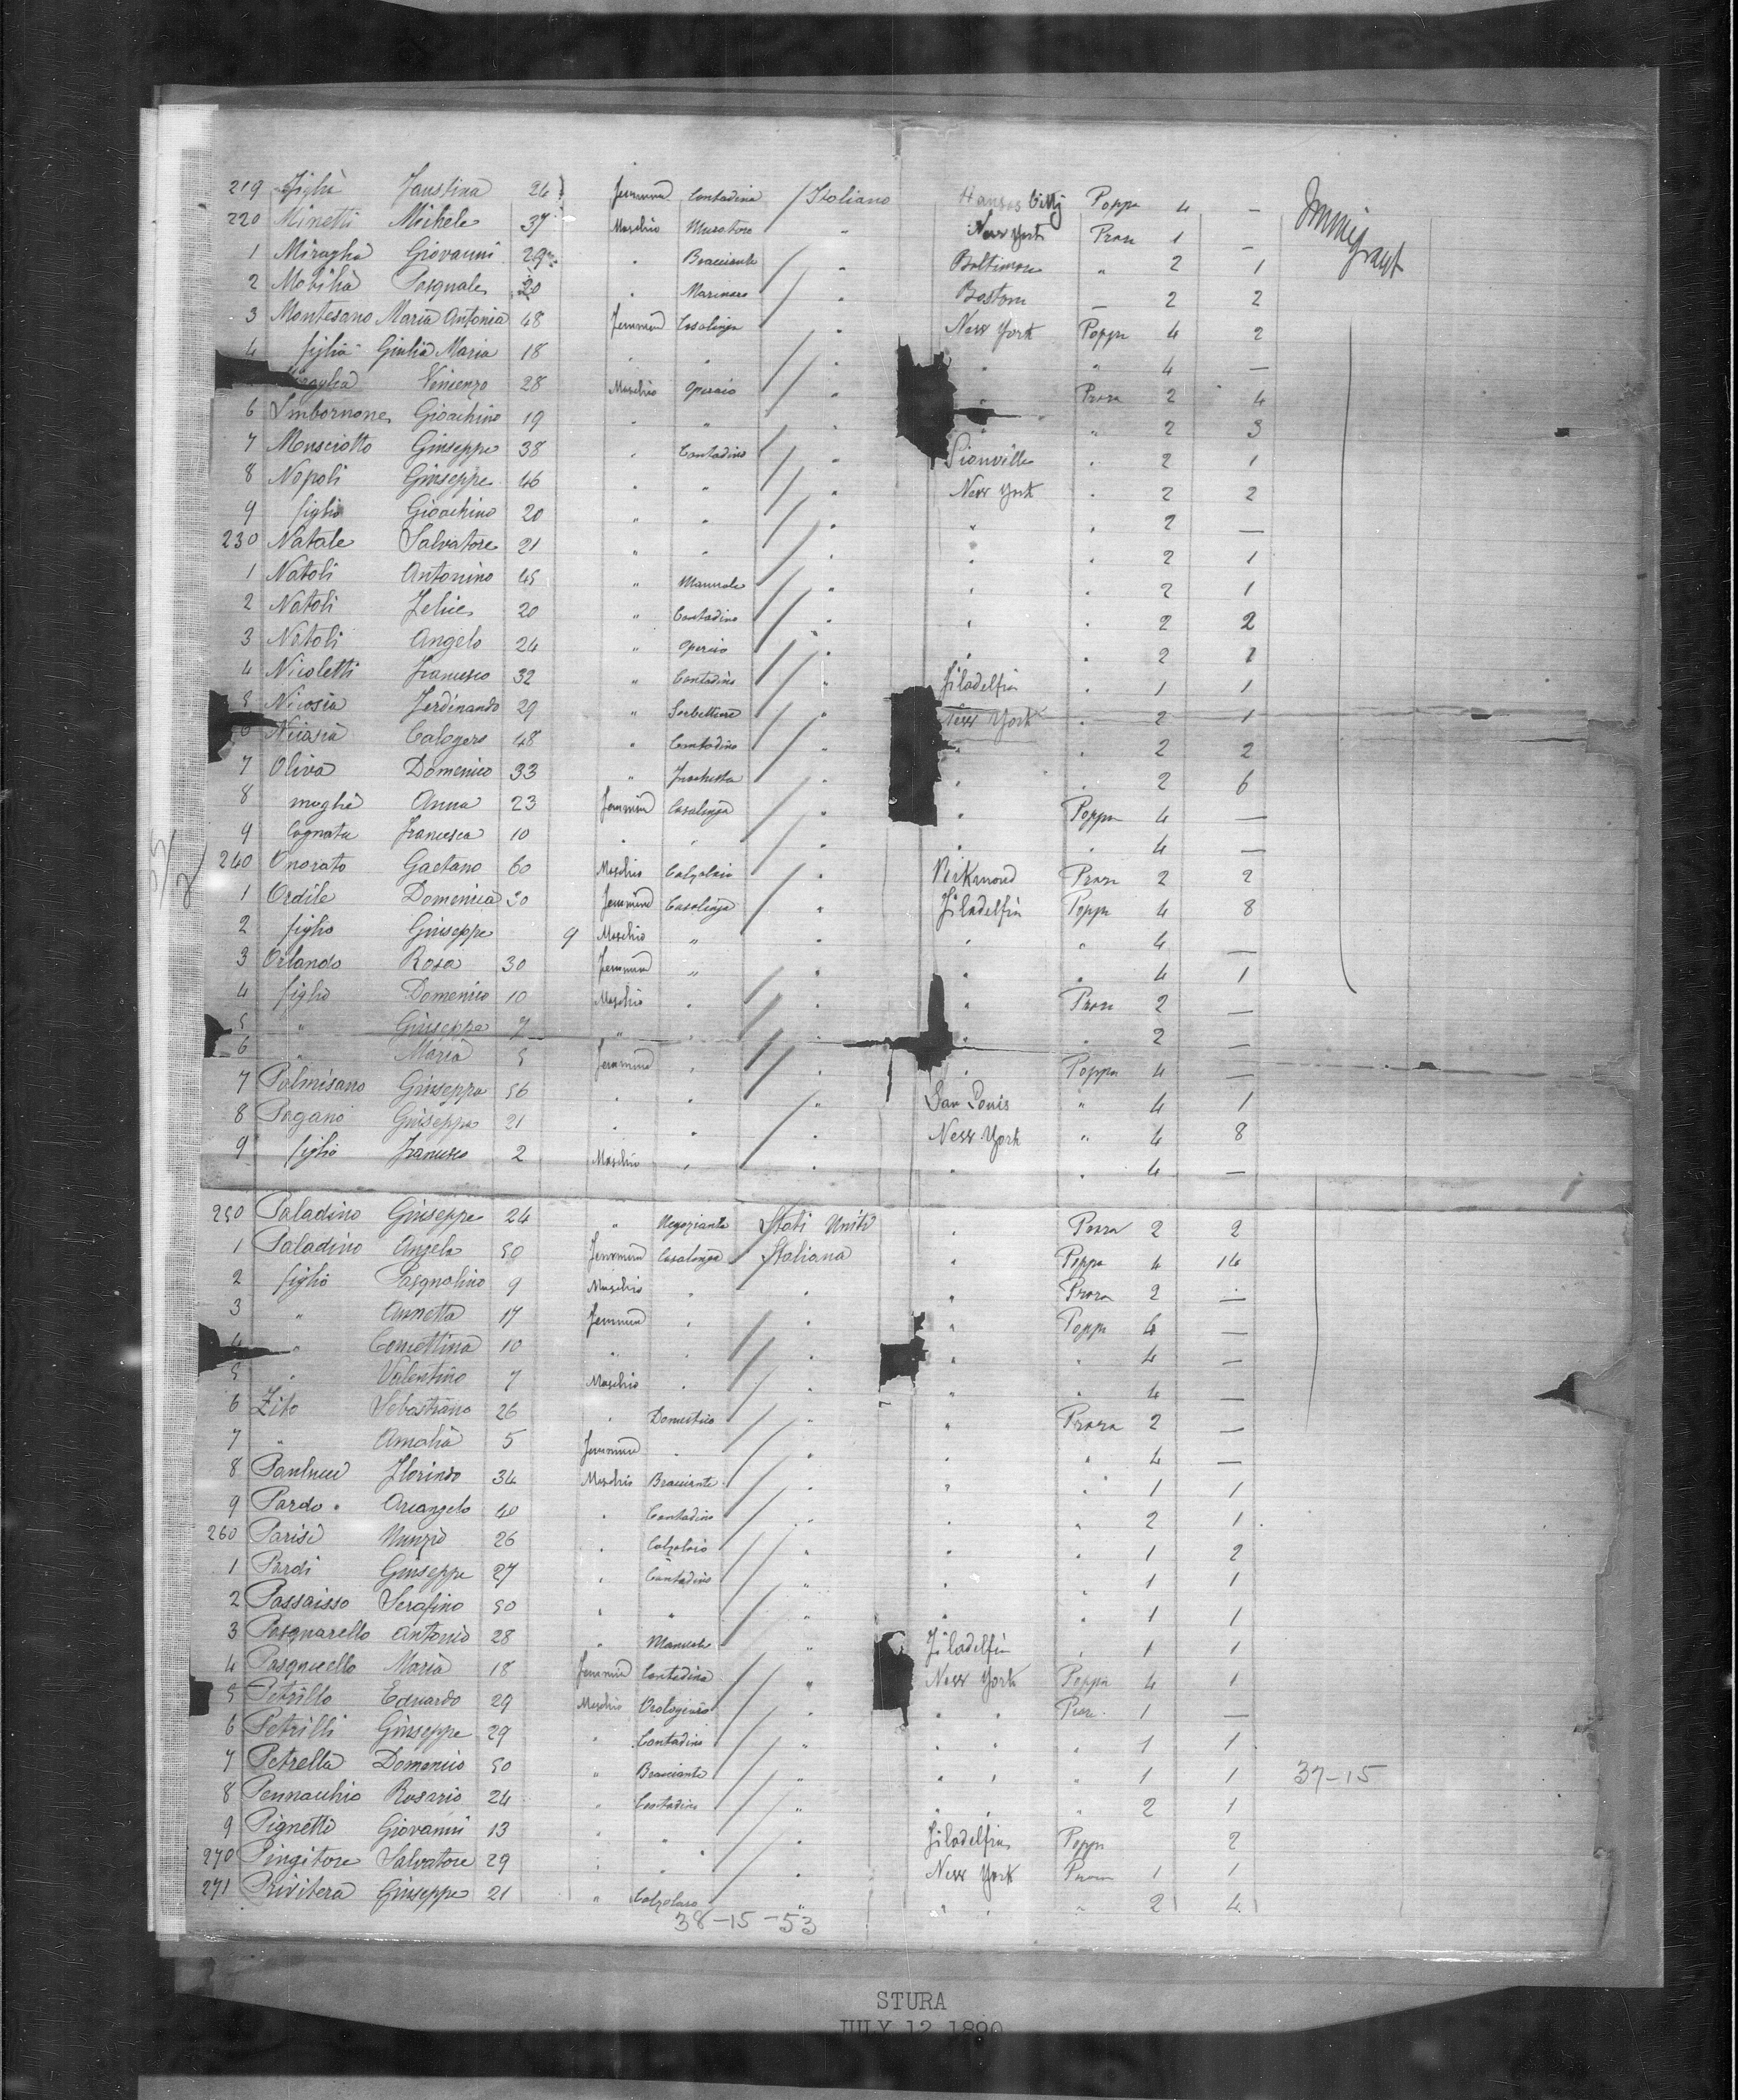 219 figlia Faustina 24 Femmina Contadina / Italiano Kansas Citty Poppa 4 - Immigrant
220 Minetti Michele 37 Maschio Muratore / " New York Prora 1 -
1 Miraglia Giovanni 29 " Bracciante / " Baltimore " 2 1
2 Mobilia Pasquale 20 " Marinaro / " Boston - 2 2
3 Montesano Maria Antonia 48 Femmina Casalinga / " New York Poppa 4 2
4 figlia Giulia Maria 18 " " / " " " 4 —
Miraglia Vincenzo 28 Maschio Operaio / " " Prora 2 4
6 Imbornone Gioachino 19 " " / " " " 2 3
7 Musciotto Giuseppe 38 " Contadino / " " 2 1
8 Napoli Giuseppe 46 " " / " New York " 2 2
9 figlio Gioachino 20 " " / " " " 2 —
230 Natale Salvatore 21 " " / " " " 2 1
1 Natoli Antonino 45 " Manuale / " " " 2 1
2 Natoli Felice 20 " Contadino / " " " 2 2
3 Natoli Angelo 24 " Operaio / " " " 2 1
4 Nicoletti Francesco 32 " Contadino / " Filadelfia " 1 1
5 Nicosia Ferdinando 29 " Sorbettiere / " New York " 2 1
6 Nicosia Calogero 48 " Contadino / " " " 2 2
7 Oliva Domenico 33 " Fuochista / " " " 2 6
8 moglie Anna 23 Femmina Casalinga / " " Poppa 4 —
9 Cognata Francesca 10 " " / " " " 4 —
240 Onorato Gaetano 60 Maschio Calzolaio / " Rikmond Prora 2 2
1 Ordile Domenica 30 Femmina Casalinga / " Filadelfia Poppa 4 8
2 figlio Giuseppe 9 Maschio " " " " 4 —
3 Orlando Rosa 30 Femmina " / " " " 4 1
4 figlio Domenico 10 Maschio " / " " Prora 2 —
5 " Giuseppe 7 " " / " " " 2 —
6 " Maria 5 Femmina " / " " Poppa 4 —
7 Palmisano Giuseppa 56 " " / " San Louis " 4 1
8 Pagano Giuseppa 21 " " / " New York " 4 8
9 figlio Francesco 2 Maschio " / " " " 4 —
250 Paladino Giuseppe 24 " Negoziante Stati Uniti " Prora 2 2
1 Paladino Angela 50 Femmina Casalinga / Italiana " Poppa 4 14
2 figlio Pasqualino 9 Maschio " / " " Prora 2 —
3 " Annetta 17 Femmina " / " " Poppa 4 —
4 " Concettina 10 " " / " " " 4 —
5 " Valentino 7 Maschio " / " " " 4 —
6 Zito Sebastiano 26 " Domestico / " " Prora 2 —
7 " Amalia 5 Femmina " / " " " 4 —
8 Paulucci Florindo 34 Maschio Bracciante / " " " 1 1
9 Pardo Arcangelo 40 " Contadino / " " " 2 1
260 Parisi Nunzio 26 " Calzolaio / " " " 1 2
1 Pardi Giuseppe 27 " Contadino / " " " 1 1
2 Passaisso Serafino 50 " " / " " " 1 1
3 Pasquarello Antonio 28 " Manuale / " Filadelfia " 1 1
4 Pasqucello Maria 18 Femmina Contadina / " New York Poppa 4 1
5 Petrillo Eduardo 29 Maschio Orologiaio / " " " Prora 1 —
6 Petrilli Giuseppe 29 " Contadino / " " " " 1 1
7 Petrella Domenico 50 " Bracciante / " " " " 1 1 37-15
8 Pennacchio Rosario 24 " Contadino / " " " " 2 1
9 Pignetti Giovanni 13 " " / " Filadelfia Poppa 2
270 Pingitore Salvatore 29 " " / " New York Prora 1 1
271 Rivitera Giuseppe 21 " Calzolaio / " " " " 2 4
38-15-53
STURA
JULY 12 1890